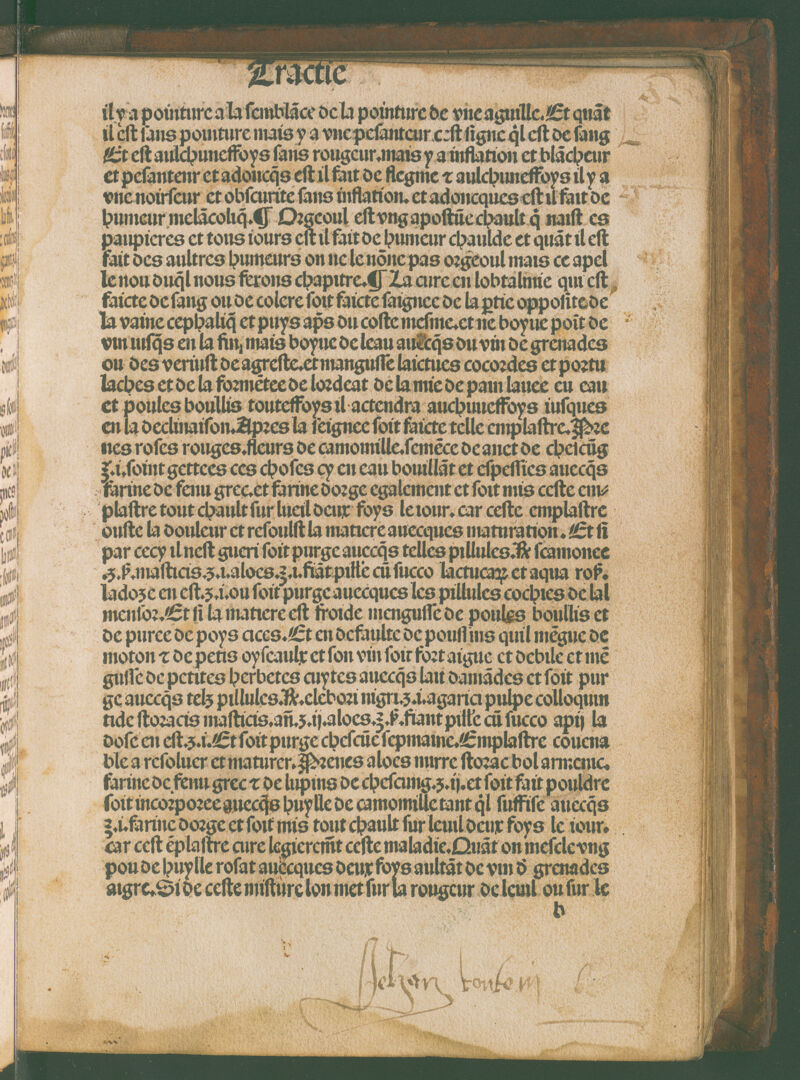 Tractie
il y a pointure a la semblãce de la pointure de vne aguille. Et quãt
il est sans pointure mais y a vne pesanteur cest signe q̃l est de sang
Et est aulchuneffoys sans rougeur. mais y a inflation et blãcheur
et pesanteur et adoncq̃s est il fait de flegme ⁊ aulchuneffoys il y a
vne noirseur et obscurite sans inflation. et adoncques est il fait de
humeur melãcoliq̃. ¶ Orgeoul est vng apostũe chault q̃ naist es
paupieres et tous iours est il fait de humeur chaulde et quãt il est
fait des aultres humeurs on ne le nõne pas orgeoul mais ce apel
le nou duq̃l nous ferons chapitre. ¶ La cure en lobtalmie qui est
faicte de sang ou de colere soit faicte saignee de la ꝑtie opposite de
la vaine cephaliq̃ et puys ap̃s du coste mesme. et ne boyue poĩt de
vin iusq̃s en la fin, mais boyue de leau auecq̃s du vin de grenades
ou des veriust de agreste. et mangusse laictues cocordes et portu
laches et de la formẽtee de lordeat de la mie de pain lauee en eau
et poules boullis touteffoys il actendra auchuneffoys iusques
en la declinaison. Apres la seignee soit faicte telle emplastre. Pre
nes roses rouges. fleurs de camomille. semẽce de anet de chescũg
ʒ.i. soint gettees ces choses cy en eau bouillãt et espessies auecq̃s
farine de fenu grec. et farine dorge egalement et soit mis ceste em⸗
plastre tout chault sur lueil deux foys le iour. car ceste emplastre
ouste la douleur et resoulst la matiere auecques maturation. Et si
par cecy il nest gueri soit purge auecq̃s telles pillules. ℞ scamonee
.ʒ.ß. masticis.ʒ.i. aloes.ʒ.i. fiãt pille cũ succo lactucaꝝ et aqua roß.
la dose en est.ʒ.i. ou soit purge auecques les pillules cochies de lal
mensor. Et si la matiere est froide mengusse de poules boullis et
de puree de poys cices. Et en defaulte de poussins quil mẽgue de
moton ⁊ de petis oyseaulx et son vin soit fort aigue et debile et mẽ
gusse de petites herbetes cuytes auecq̃s lait damãdes et soit pur
ge auecq̃s telz pillules. ℞. elebori nigri.ʒ.i. agarici pulpe colloquin
tide storacis masticis. añ.ʒ.ij. aloes.ʒ.ß. fiant pille cũ succo apij la
dose en est.ʒ.i. Et soit purge chescũe sepmaine. Emplastre cõuena
ble a resoluer et maturer. Prenes aloes mirre storac bol armenic.
farine de fenu grec ⁊ de lupins de chescung.ʒ.ij. et soit fait pouldre
soit incorporee auecq̃s huylle de camomille tant q̃l suffise auecq̃s
ʒ.i. farine dorge et soit mis tout chault sur leuil deux foys le iour.
car cest ẽplastre cure legieremt̃ ceste maladie. Quãt on mescle vng
pou de huylle rosat auecques deux foys aultãt de vin đ grenades
aigre. Si de ceste misture lon met sur la rougeur de leuil ou sur le
b
Jehan